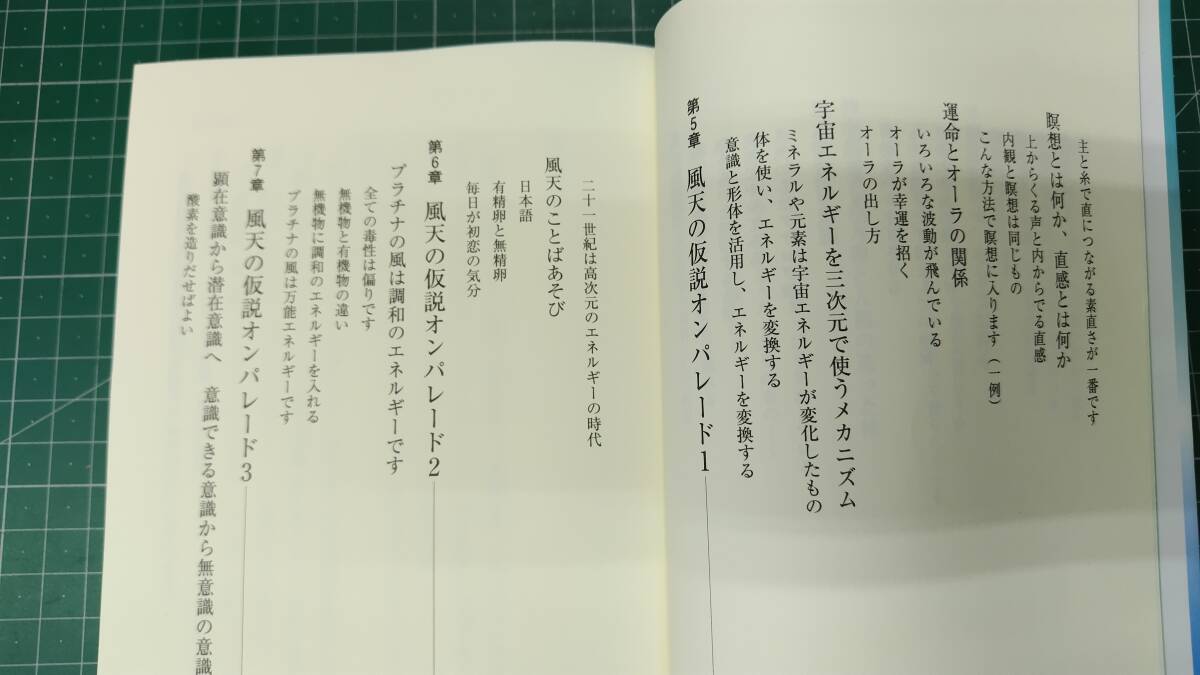 主と糸で直につながる素直さが一番です
瞑想とは何か、直感とは何か
上からくる声と内からでる直感
内観と瞑想は同じもの
こんな方法で瞑想に入ります（一例）
運命とオーラの関係
いろいろな波動が飛んでいる
オーラが幸運を招く
オーラの出し方
宇宙エネルギーを三次元で使うメカニズム
ミネラルや元素は宇宙エネルギーが変化したもの
体を使い、エネルギーを変換する
意識と形体を活用し、エネルギーを変換する
第5章 風天の仮説オンパレード1
二十一世紀は高次元のエネルギーの時代
風天のことばあそび
日本語
有精卵と無精卵
毎日が初恋の気分
第6章 風天の仮説オンパレード2
プラチナの風は調和のエネルギーです
全ての毒性は偏りです
無機物と有機物の違い
無機物に調和のエネルギーを入れる
プラチナの風は万能エネルギーです
第7章 風天の仮説オンパレード3
顕在意識から潜在意識へ 意識できる意識から無意識の意識
酸素を造りだせばよい